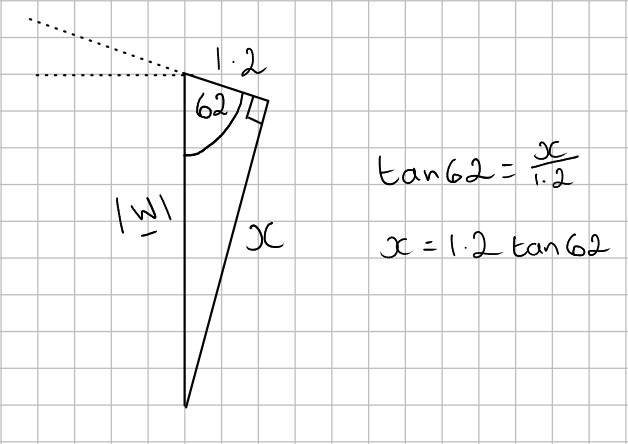 1.2
62
|w|
x
tan62 = x/1.2
x = 1.2 tan62